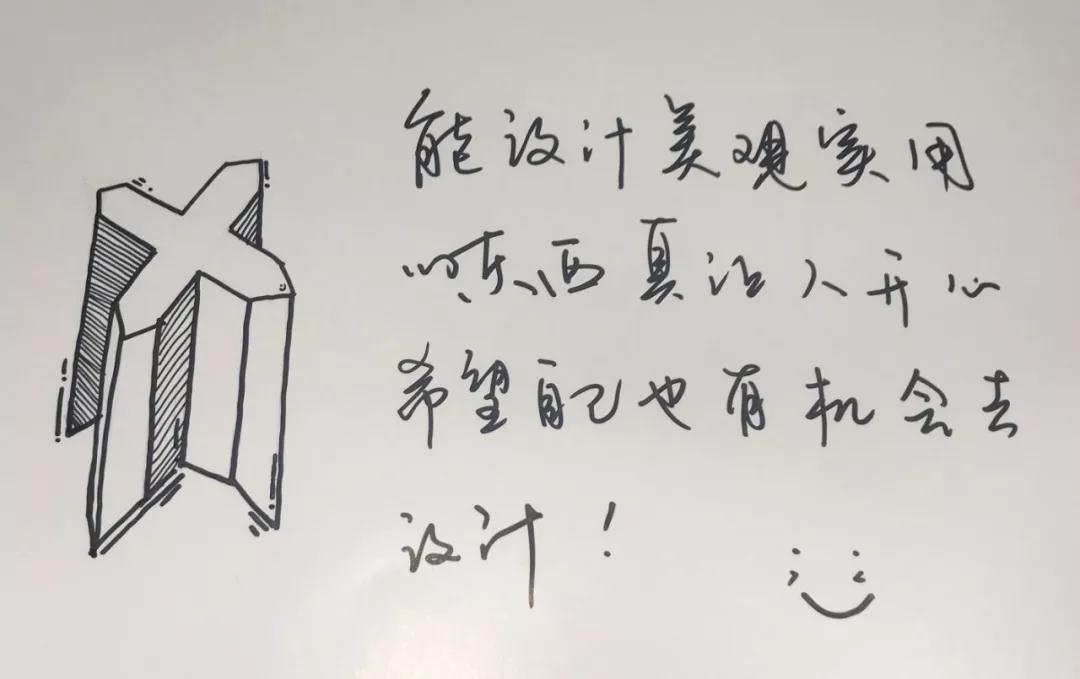 能设计美观实用
的东西真让人开心
希望自己也有机会去
设计!